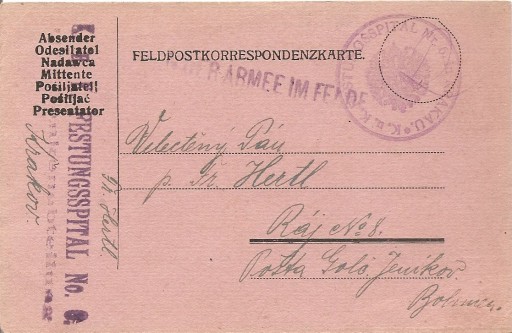 Absender
Odesílatel
Nadawca
Mittente
Pošiljatelj
Pošiljač
Presentator
FELDPOSTKORRESPONDENZKARTE.
ARMEE IM FELDE
FESTUNGSSPITAL No. 6
Krakov.
Fr. Hertl
Velectěný Pán
p. Fr. Hertl
Ráj No 8.
Pošta Golč. Jeníkov
Bohmen.